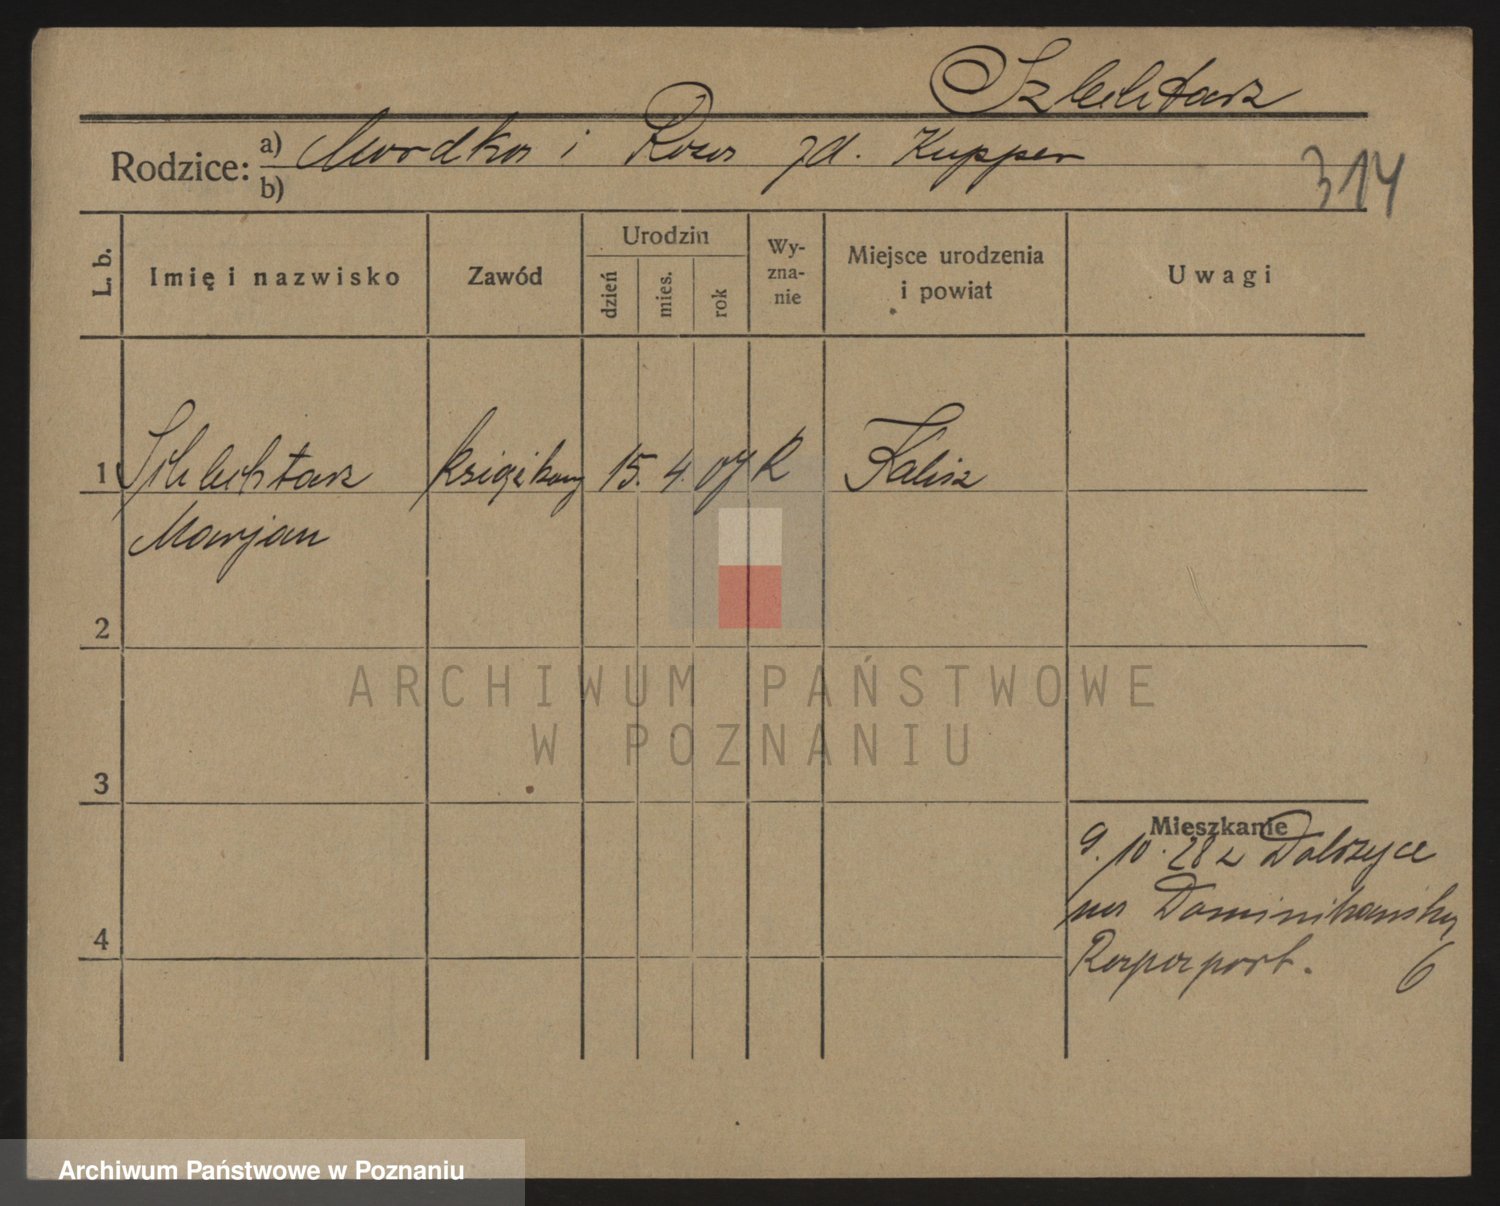 Szlechtarz
Rodzice: a) Mordka i Roza zd. Kupper
b)
314
L. b.
Imię i nazwisko
Zawód
Urodzin
dzień
mies.
rok
Wy-
zna-
nie
Miejsce urodzenia
i powiat
Uwagi
1 Schlechtarz księgowy 15. 4. 07 R Kalisz
Marjan
2
3
4
Mieszkanie
9. 10. 28 z Dobrzyce
na Dominikańską
Rapaport. 6
ARCHIWUM PAŃSTWOWE
W POZNANIU
Archiwum Państwowe w Poznaniu